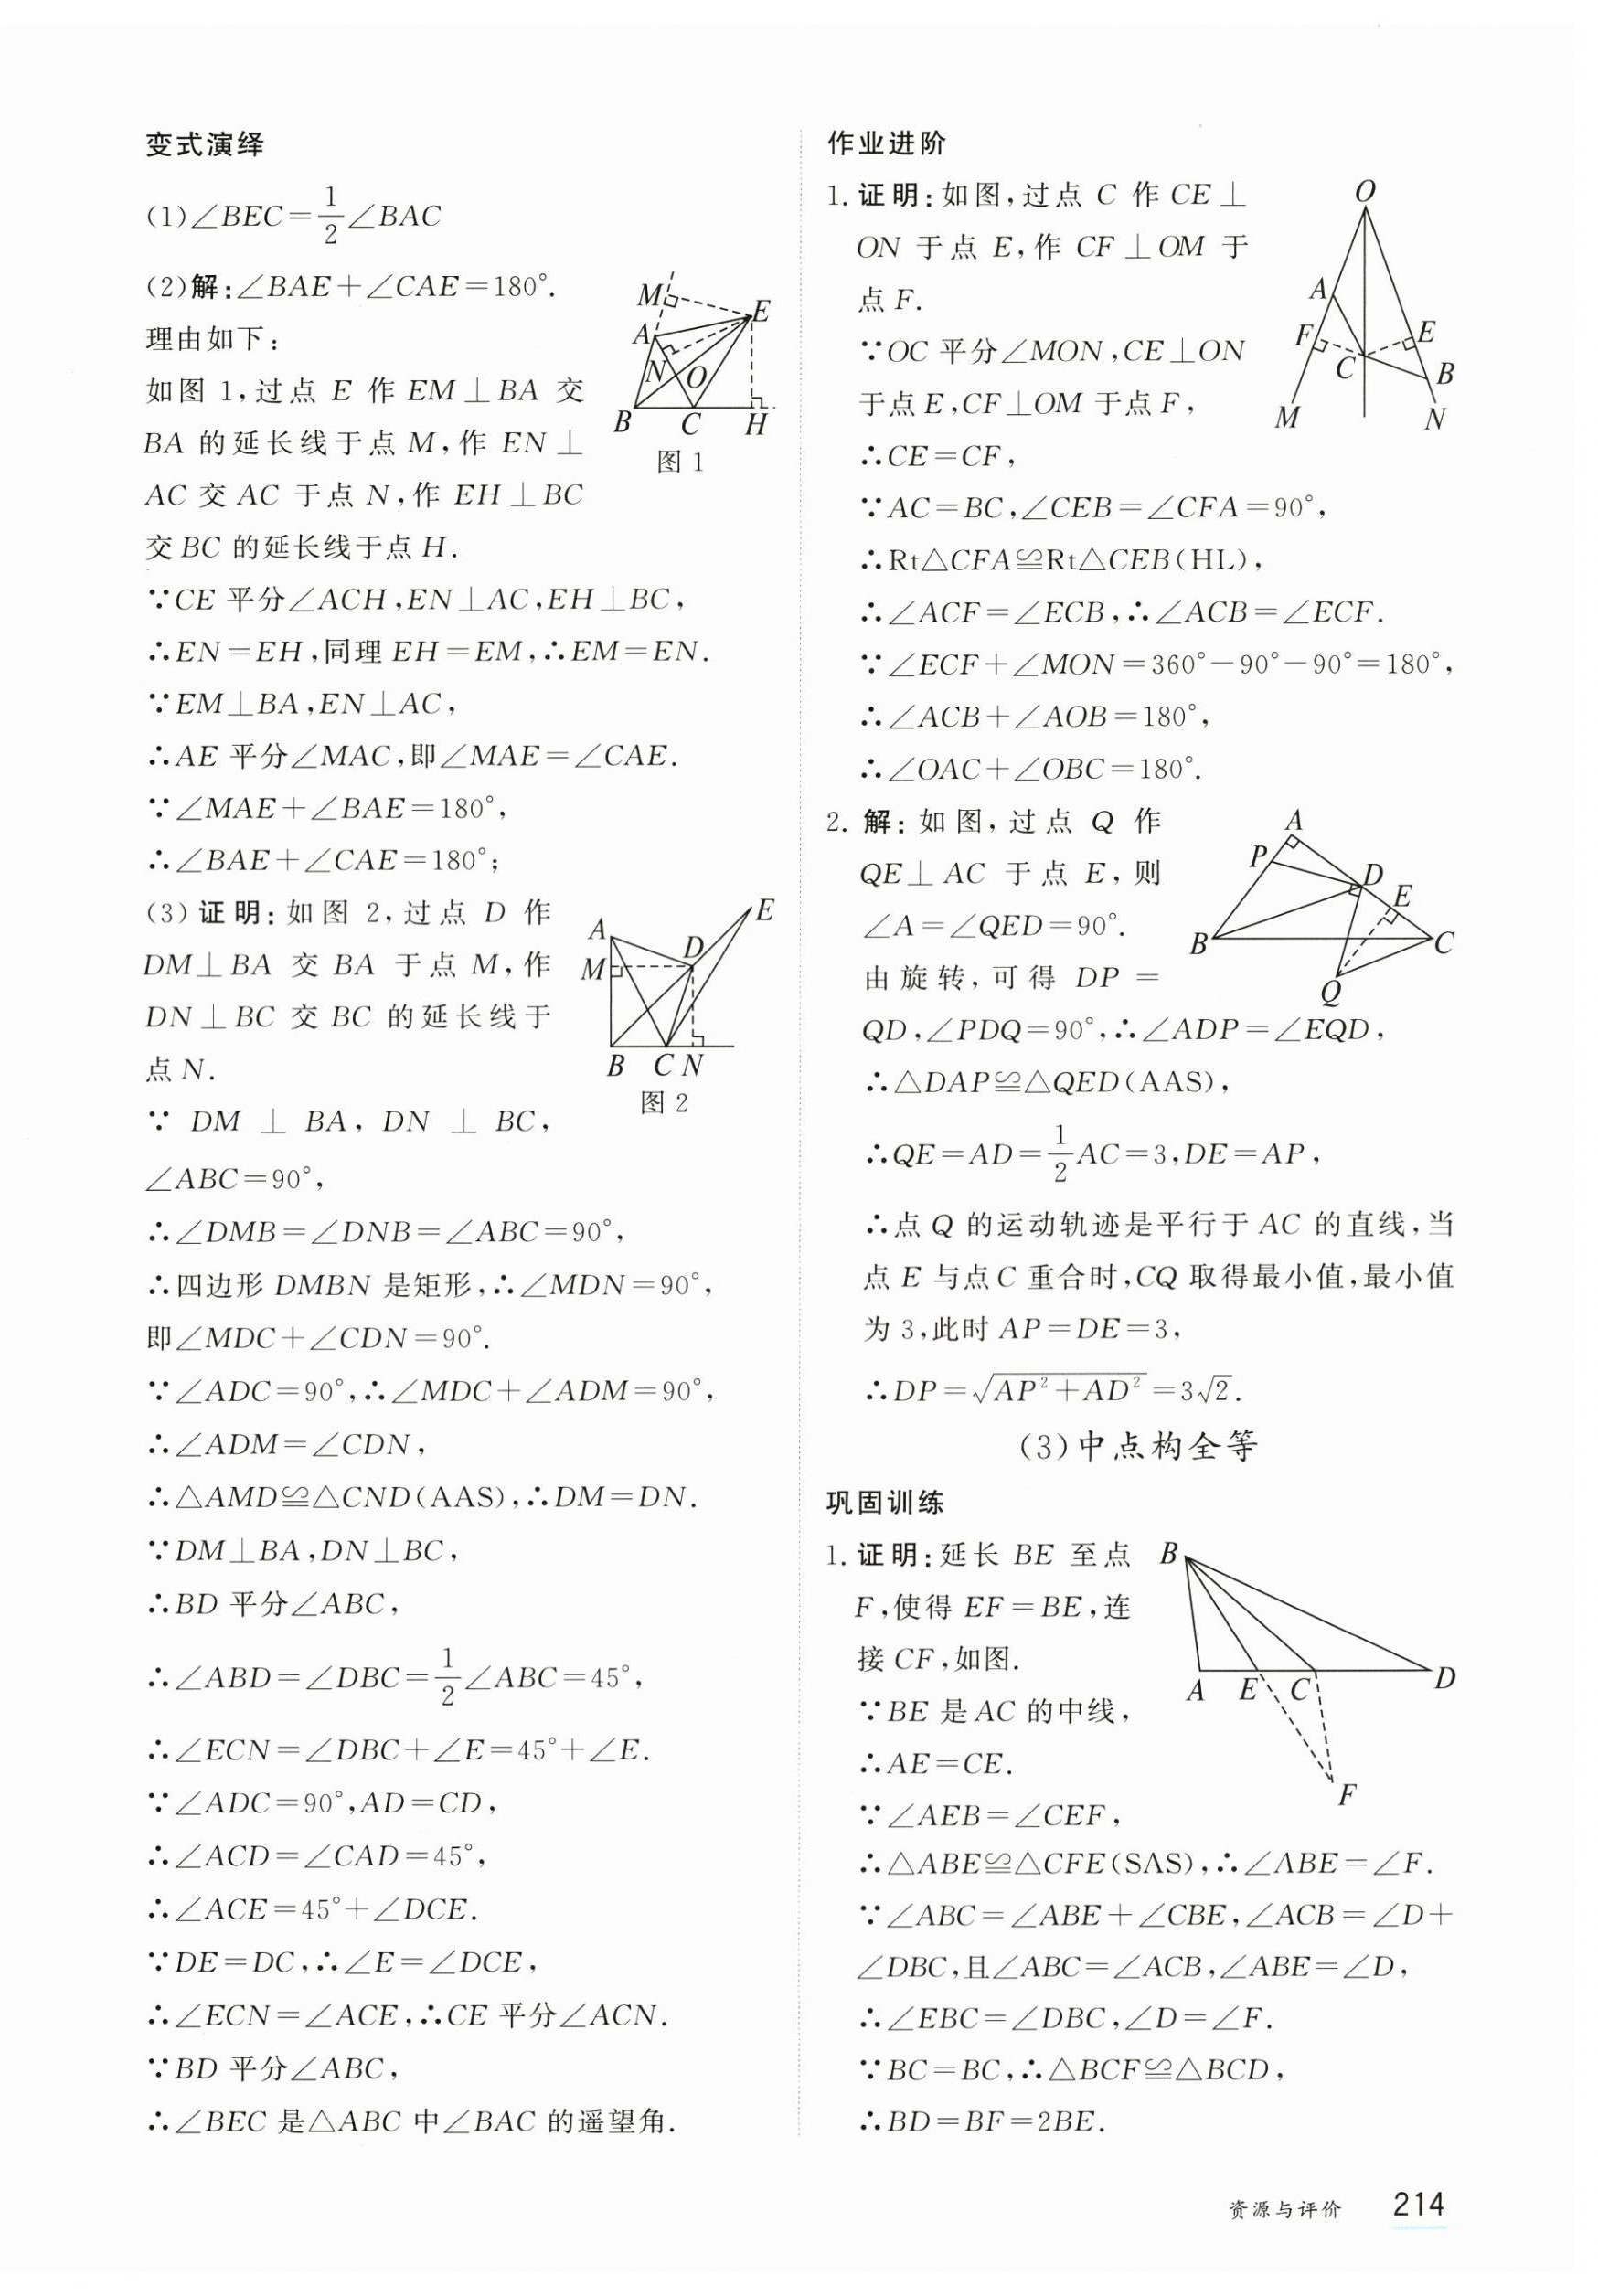 变式演绎
(1)∠BEC=1/2∠BAC
(2)解:∠BAE+∠CAE=180°.
理由如下:
如图 1,过点 E 作 EM⊥BA 交
BA 的延长线于点 M,作 EN⊥
AC 交 AC 于点 N,作 EH⊥BC
交 BC 的延长线于点 H.
∵CE 平分∠ACH,EN⊥AC,EH⊥BC,
∴EN=EH,同理 EH=EM,∴EM=EN.
∵EM⊥BA,EN⊥AC,
∴AE 平分∠MAC,即∠MAE=∠CAE.
∵∠MAE+∠BAE=180°,
∴∠BAE+∠CAE=180°;
M
E
A
N
O
B
C
H
图 1
(3)证明:如图 2,过点 D 作
DM⊥BA 交 BA 于点 M,作
DN⊥BC 交 BC 的延长线于
点 N.
∵ DM ⊥ BA, DN ⊥ BC,
∠ABC=90°,
∴∠DMB=∠DNB=∠ABC=90°,
∴四边形 DMBN 是矩形,∴∠MDN=90°,
即∠MDC+∠CDN=90°.
∵∠ADC=90°,∴∠MDC+∠ADM=90°,
∴∠ADM=∠CDN,
∴△AMD≌△CND(AAS),∴DM=DN.
∵DM⊥BA,DN⊥BC,
∴BD 平分∠ABC,
∴∠ABD=∠DBC=1/2∠ABC=45°,
∴∠ECN=∠DBC+∠E=45°+∠E.
∵∠ADC=90°,AD=CD,
∴∠ACD=∠CAD=45°,
∴∠ACE=45°+∠DCE.
∵DE=DC,∴∠E=∠DCE,
∴∠ECN=∠ACE,∴CE 平分∠ACN.
∵BD 平分∠ABC,
∴∠BEC 是△ABC 中∠BAC 的遥望角.
E
A
D
M
B
C
N
图 2
作业进阶
1. 证明:如图,过点 C 作 CE⊥
ON 于点 E,作 CF⊥OM 于
点 F.
∵OC 平分∠MON,CE⊥ON
于点 E,CF⊥OM 于点 F,
∴CE=CF,
∵AC=BC,∠CEB=∠CFA=90°,
∴Rt△CFA≌Rt△CEB(HL),
∴∠ACF=∠ECB,∴∠ACB=∠ECF.
∵∠ECF+∠MON=360°-90°-90°=180°,
∴∠ACB+∠AOB=180°,
∴∠OAC+∠OBC=180°.
O
A
F
E
C
B
M
N
2. 解:如图,过点 Q 作
QE⊥AC 于点 E,则
∠A=∠QED=90°.
由旋转,可得 DP =
QD,∠PDQ=90°,∴∠ADP=∠EQD,
∴△DAP≌△QED(AAS),
∴QE=AD=1/2AC=3,DE=AP,
∴点 Q 的运动轨迹是平行于 AC 的直线,当
点 E 与点 C 重合时,CQ 取得最小值,最小值
为 3,此时 AP=DE=3,
∴DP=√(AP²+AD²)=3√2.
A
P
D
E
B
C
Q
(3)中点构全等
巩固训练
1. 证明:延长 BE 至点
F,使得 EF=BE,连
接 CF,如图.
∵BE 是 AC 的中线,
∴AE=CE.
∵∠AEB=∠CEF,
∴△ABE≌△CFE(SAS),∴∠ABE=∠F.
∵∠ABC=∠ABE+∠CBE,∠ACB=∠D+
∠DBC,且∠ABC=∠ACB,∠ABE=∠D,
∴∠EBC=∠DBC,∠D=∠F.
∵BC=BC,∴△BCF≌△BCD,
∴BD=BF=2BE.
B
A
E
C
D
F
资源与评价 214